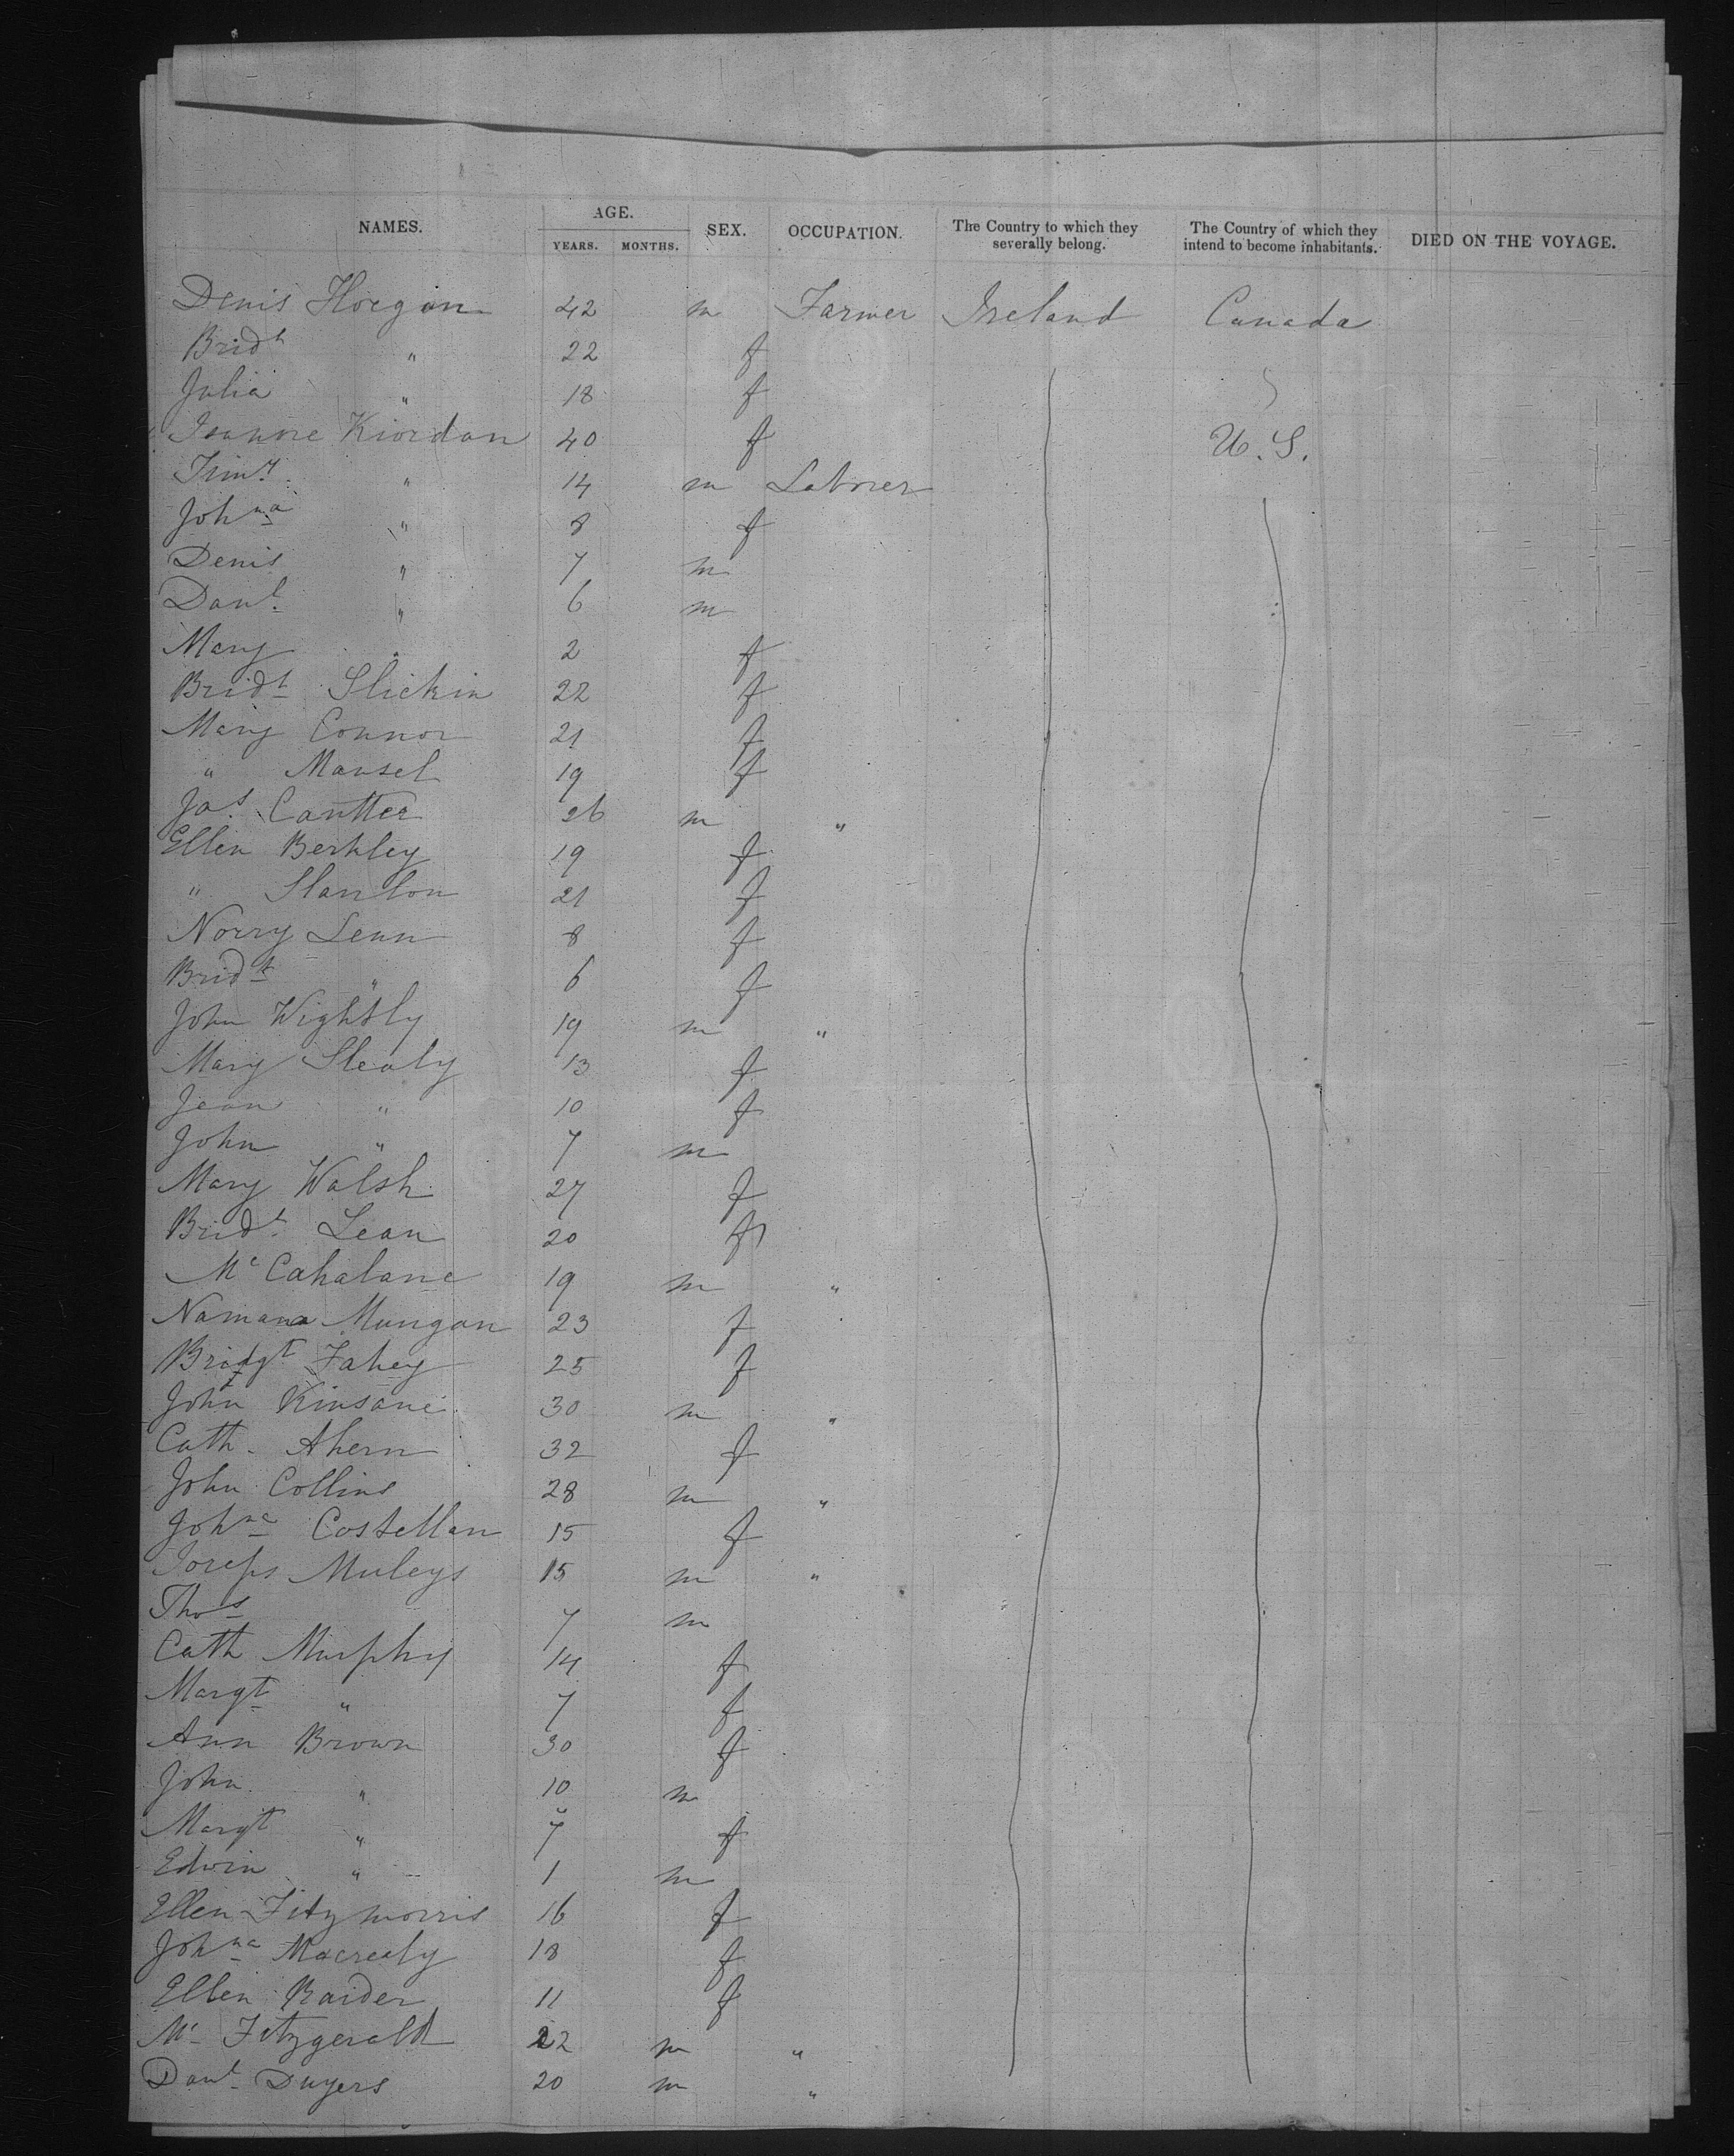 NAMES. AGE. YEARS. MONTHS. SEX. OCCUPATION. The Country to which they severally belong. The Country of which they intend to become inhabitants. DIED ON THE VOYAGE.
Denis Horgan 42 m Farmer Ireland Canada
Bridt " 22 f
Julia " 18 f
Joanne Riordan 40 f U.S.
Timy " 14 m Laborer
Johna " 8 f
Denis " 7 m
Danl " 6 m
Mary " 2 f
Bridt Slickin 22 f
Mary Connor 21 f
" Mansel 19 f
Jas. Cautter 26 m "
Ellen Berkley 19 f
" Stanton 21 f
Norry Lenn 8 f
Bridt " 6 f
John Wightly 19 m "
Mary Slealy 13 f
Jean " 10 f
John " 7 m
Mary Walsh 27 f
Bridt Lean 20 f
Mc Cahalane 19 m "
Namana Mungan 23 f
Bridgt Fahey 25 f
John Kinsane 30 m "
Cath. Ahern 32 f
John Collins 28 m "
Johna Costellan 15 f
Joseps Muleys 15 m "
Thos 7 m
Cath Murphy 14 f
Margt " 7 f
Ann Brown 30 f
John " 10 m
Margt " 7 f
Edwin " 1 m
Ellen Fitzmorris 16 f
Johna Macrealy 18 f
Ellen Raider 11 f
Mc Fitzgerald 22 m "
Danl Duyers 20 m "